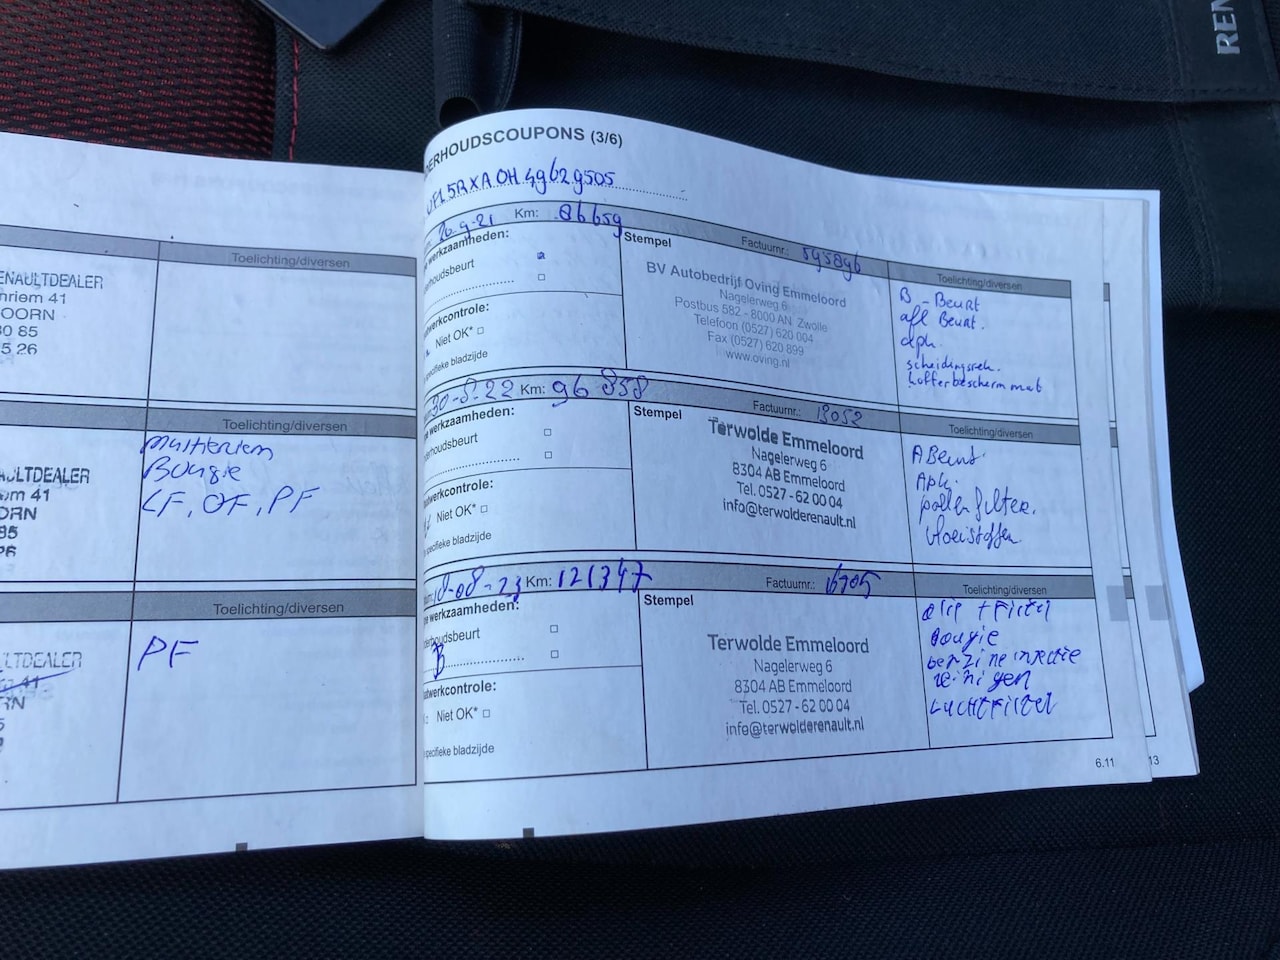 REN
Toelichting/diversen
ENAULTDEALER
nriem 41
OORN
30 85
5 26
Toelichting/diversen
Multiriem
Bougie
LF, OF, PF
AULTDEALER
em 41
ORN
85
26
Toelichting/diversen
PF
LTDEALER
RN
ERHOUDSCOUPONS (3/6)
VF15RXA0H49629505
20-9-21 Km: 86659
Factuurnr.: 595896
werkzaamheden:
derhoudsbeurt
werkcontrole:
Niet OK*
specifieke bladzijde
Stempel
BV Autobedrijf Oving Emmeloord
Nagelerweg 6
Postbus 582 - 8000 AN Zwolle
Telefoon (0527) 620 004
Fax (0527) 620 899
www.oving.nl
Toelichting/diversen
B - Beurt
afl Beurt.
apk.
kofferbescherm mat
30-8-22 Km: 96 858
Factuurnr.: 13052
ne werkzaamheden:
derhoudsbeurt
atwerkcontrole:
Niet OK*
specifieke bladzijde
Stempel
Terwolde Emmeloord
Nagelerweg 6
8304 AB Emmeloord
Tel. 0527 - 62 00 04
info@terwolderenault.nl
Toelichting/diversen
A Beurt.
Apk.
pollenfilter.
vloeistoffen
18-08-23 Km: 121347
Factuurnr.:
ne werkzaamheden:
derhoudsbeurt
B
atwerkcontrole:
Niet OK*
specifieke bladzijde
Stempel
Terwolde Emmeloord
Nagelerweg 6
8304 AB Emmeloord
Tel. 0527 - 62 00 04
info@terwolderenault.nl
Toelichting/diversen
olie + filter
Bougie
benzine injectie
reinigen
Luchtfilter
6.11
13